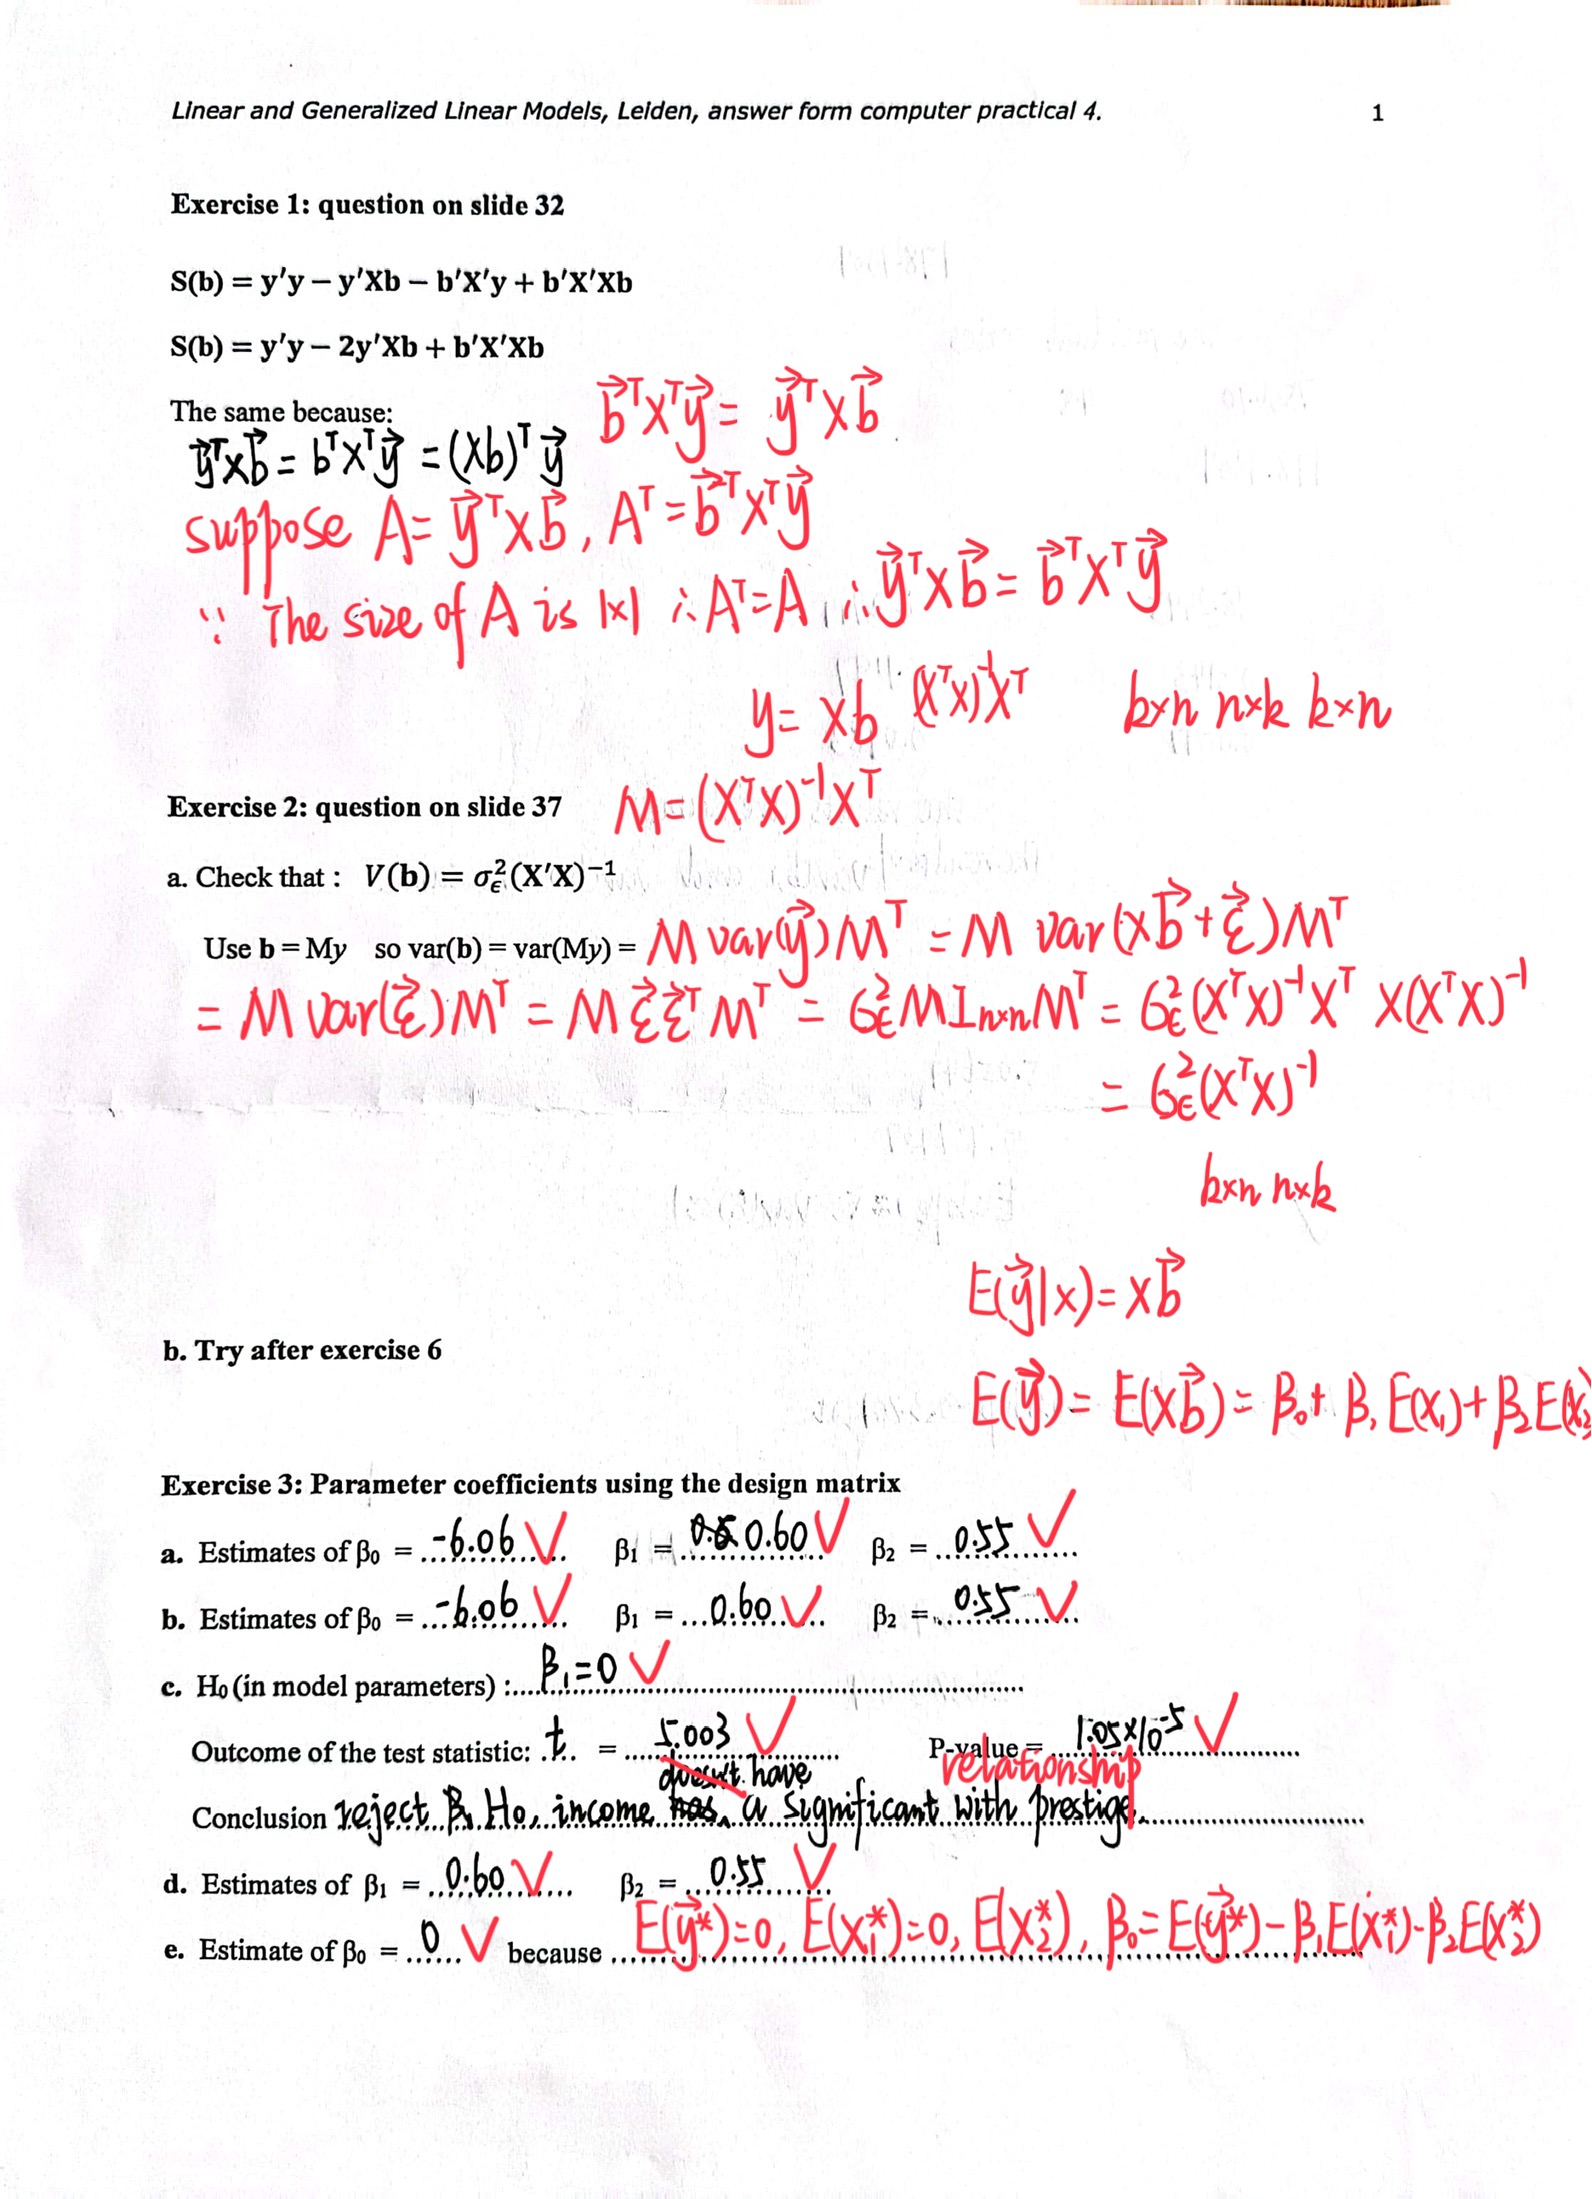 Linear and Generalized Linear Models, Leiden, answer form computer practical 4. 1
Exercise 1: question on slide 32
S(b) = y′y – y′Xb – b′X′y + b′X′Xb
S(b) = y′y – 2y′Xb + b′X′Xb
The same because: b⃗ᵀXᵀy⃗ = y⃗ᵀXb⃗
y⃗ᵀxb⃗ = bᵀXᵀy⃗ = (Xb)ᵀy⃗
suppose A = y⃗ᵀXb⃗, Aᵀ = b⃗ᵀXᵀy⃗
∵ The size of A is 1×1 ∴ Aᵀ=A, ∴ y⃗ᵀXb⃗ = b⃗ᵀXᵀy⃗
y = xb (XᵀX)⁻¹Xᵀ k×n n×k k×n
Exercise 2: question on slide 37 M = (XᵀX)⁻¹Xᵀ
a. Check that : V(b) = σ²ϵ(X′X)⁻¹
Use b = My so var(b) = var(My) = M var(y⃗)Mᵀ = M var(Xb⃗+ε⃗)Mᵀ
= M var(ε⃗)Mᵀ = M ε⃗ε⃗ᵀ Mᵀ = σ²ϵMIn×nMᵀ = σ²ϵ(XᵀX)⁻¹Xᵀ X(XᵀX)⁻¹
= σ²ϵ(XᵀX)⁻¹
k×n n×k
E(y⃗|x) = xb⃗
b. Try after exercise 6
E(y⃗) = E(Xb⃗) = β₀ + β₁E(X₁) + β₂E(X₂)
Exercise 3: Parameter coefficients using the design matrix
a. Estimates of β₀ = -6.06 ✓ β₁ = 0.60 ✓ β₂ = 0.55 ✓
b. Estimates of β₀ = -6.06 ✓ β₁ = 0.60 ✓ β₂ = 0.55 ✓
c. H₀ (in model parameters) : β₁=0 ✓
Outcome of the test statistic: t = 5.003 ✓ P-value = 1.05×10⁻⁵ ✓
doesn't have relationship
Conclusion reject β₁ H₀, income has a significant with prestige.
d. Estimates of β₁ = 0.60 ✓ β₂ = 0.55 ✓
e. Estimate of β₀ = 0 ✓ because E(y⃗*)=0, E(x₁*)=0, E(x₂*), β₀=E(y⃗*)-β₁E(x₁*)-β₂E(x₂*)